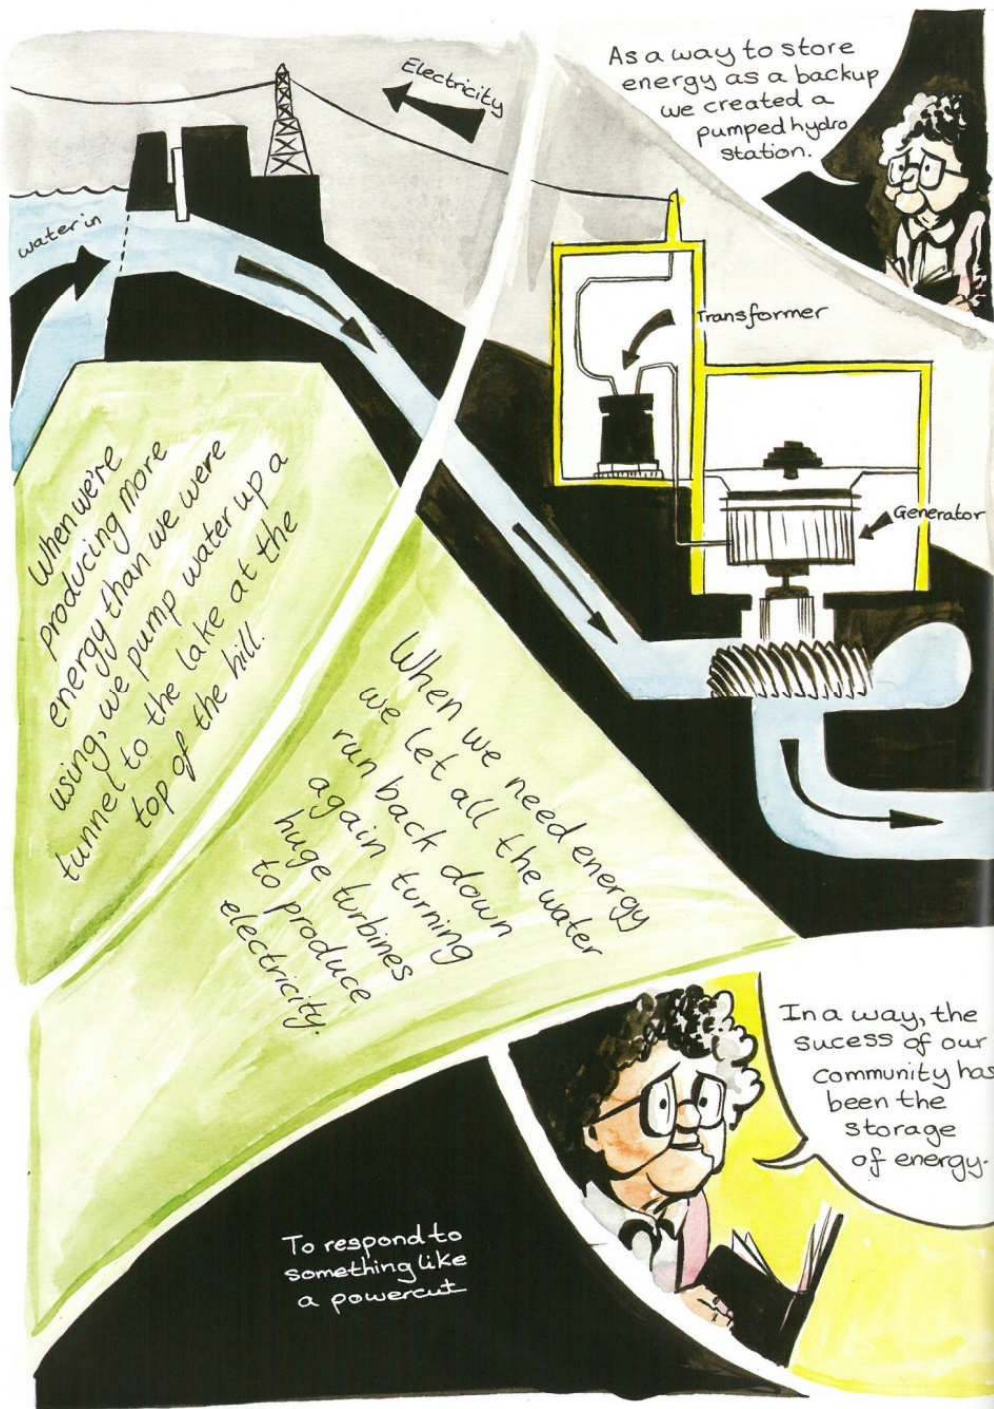 As a way to store
energy as a backup
we created a
pumped hydro
station.
Electricity
water in
Transformer
Generator
When we're
producing more
energy than we were
using, we pump water up a
tunnel to the lake at the
top of the hill.
When we need energy
we let all the water
run back down
again turning
huge turbines
to produce
electricity.
In a way, the
sucess of our
community has
been the
storage
of energy.
To respond to
something like
a powercut